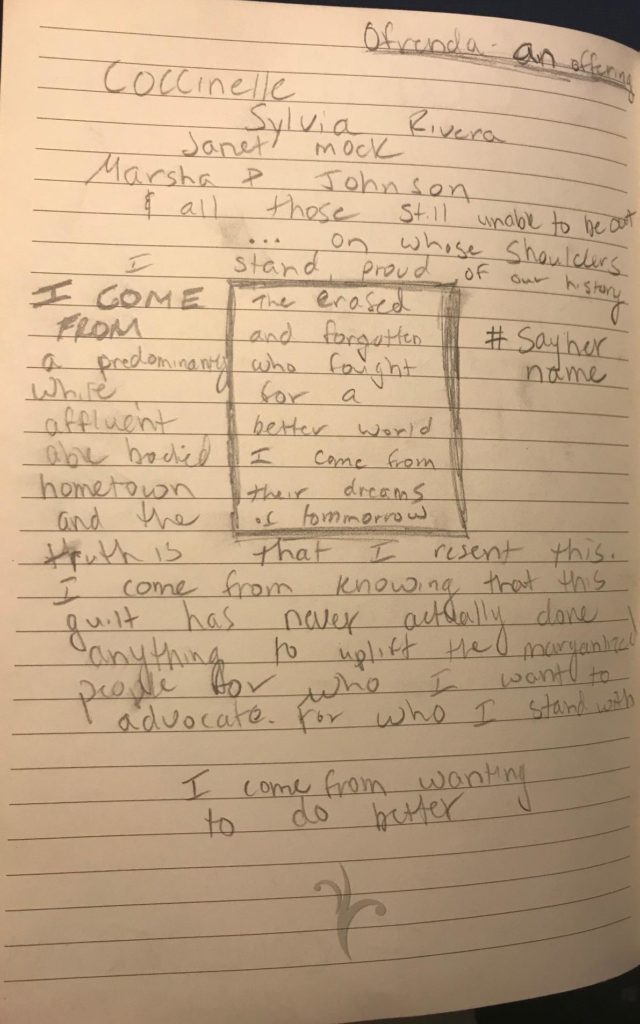 Ofrenda - an offering
Coccinelle
Sylvia Rivera
Janet mock
Marsha P Johnson
& all those still unable to be out
... on whose shoulders
I stand, proud of our history
I COME
FROM
a predominantly
white,
affluent
able bodied
hometown
and the
The erased
and forgotten
who faught
for a
better world
I come from
their dreams
of tommorrow
# Sayher
name
truth is that I resent this.
I come from knowing that this
guilt has never actually done
anything to uplift the marganlized
people for who I want to
advocate. for who I stand with
I come from wanting
to do better